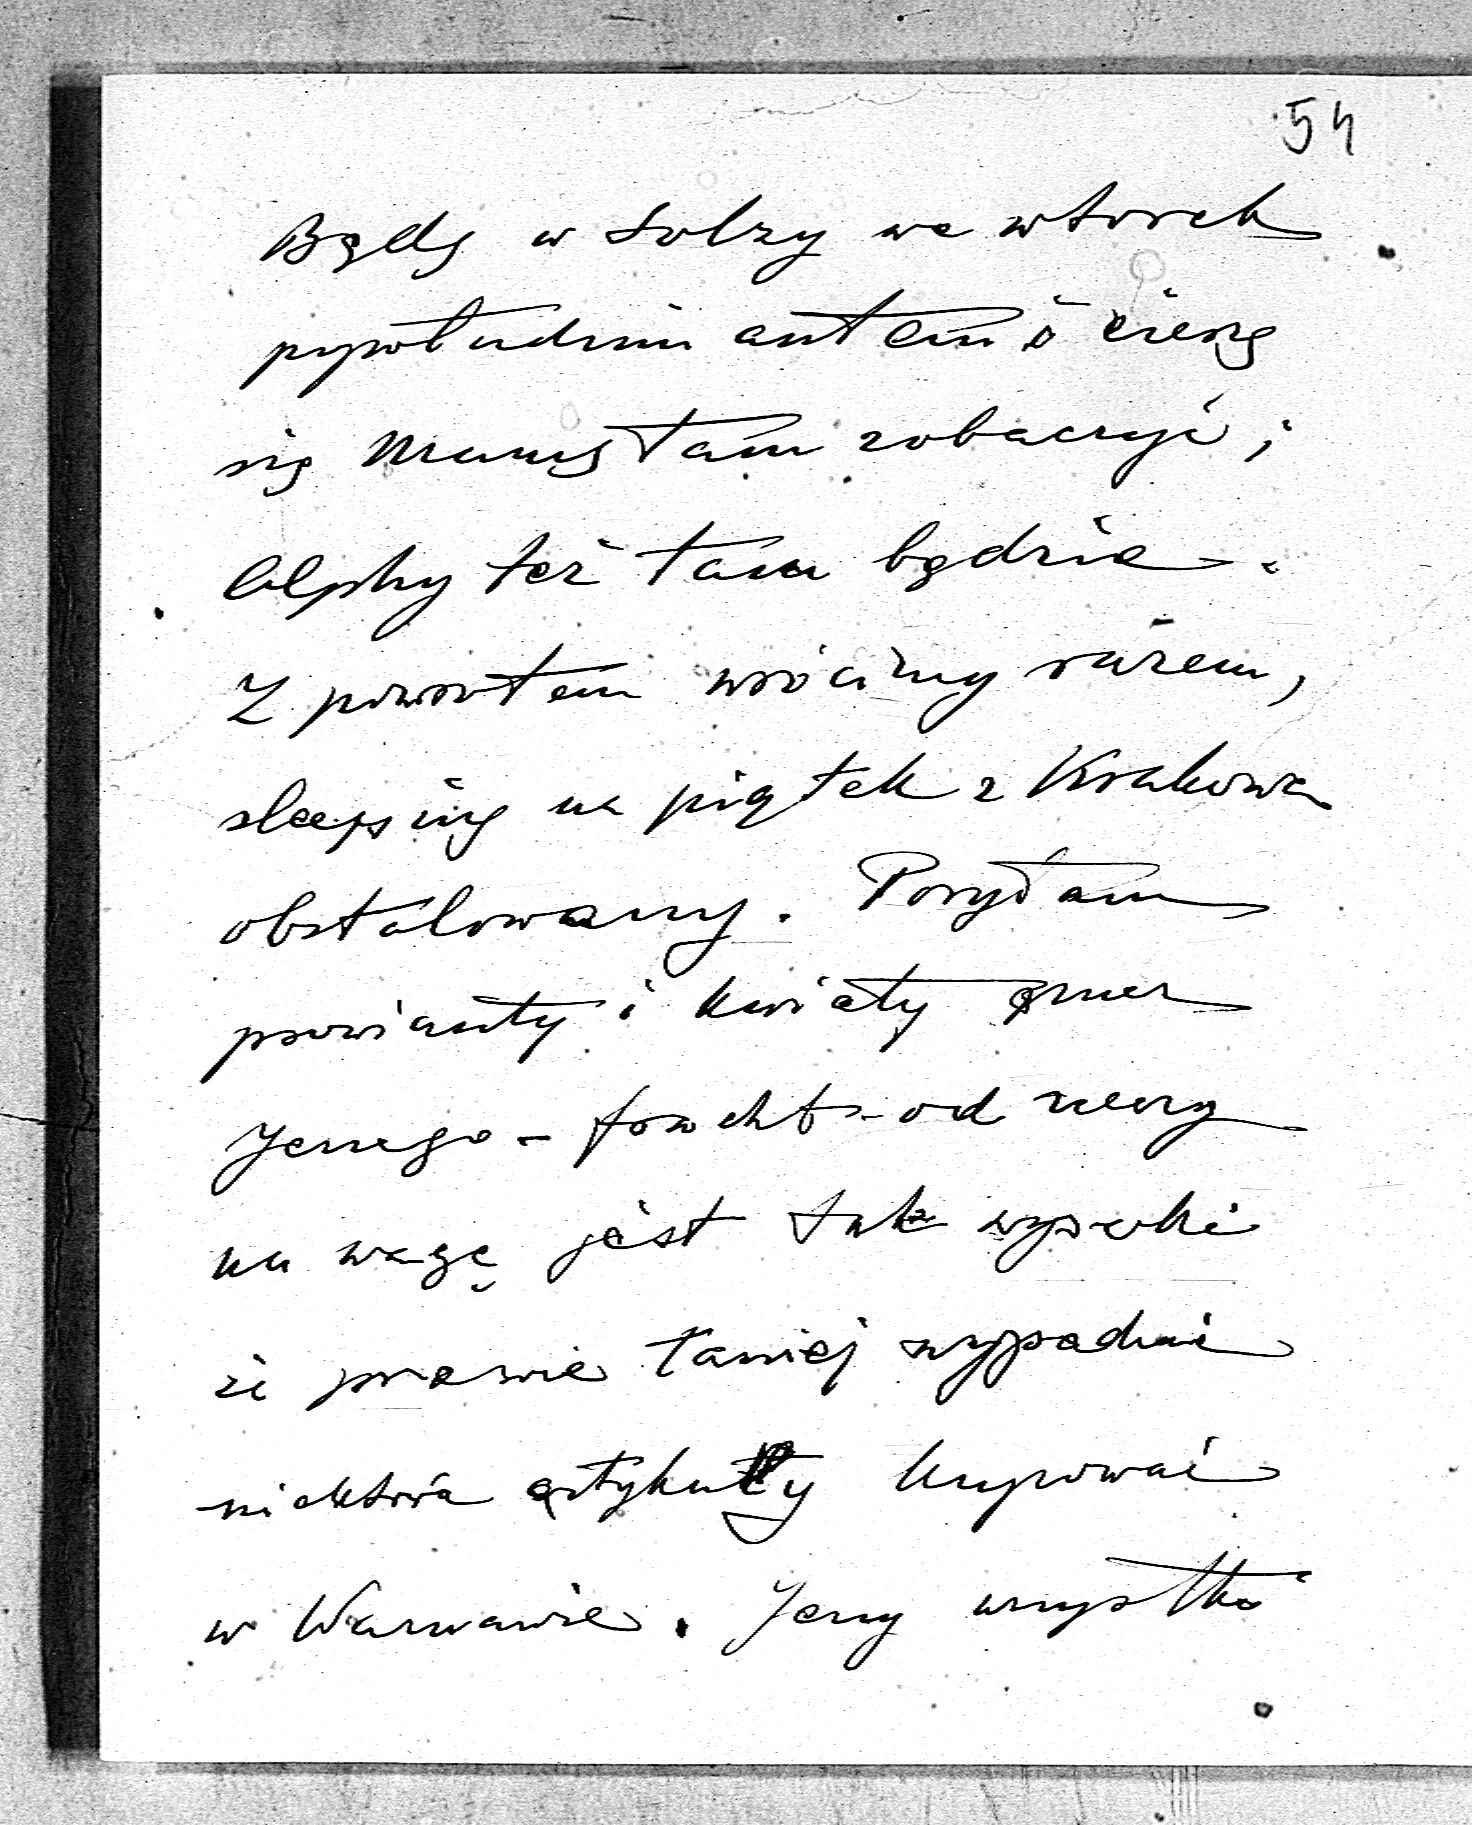 54
Będę w Solzy we wtorek
popołudniu autem i cieszę
się Mamę tam zobaczyć;
Alphy też tam będzie.
Z powrotem wrócimy razem,
sleeping na piątek z Krakowa
obstalowany. Posyłam
prowianty i kwiaty przez
Jerzego – fracht od rzeczy
na wagę jest tak wysoki
że prawie taniej wypadnie
niektóre artykuły kupować
w Warszawie. Jerzy wszystko